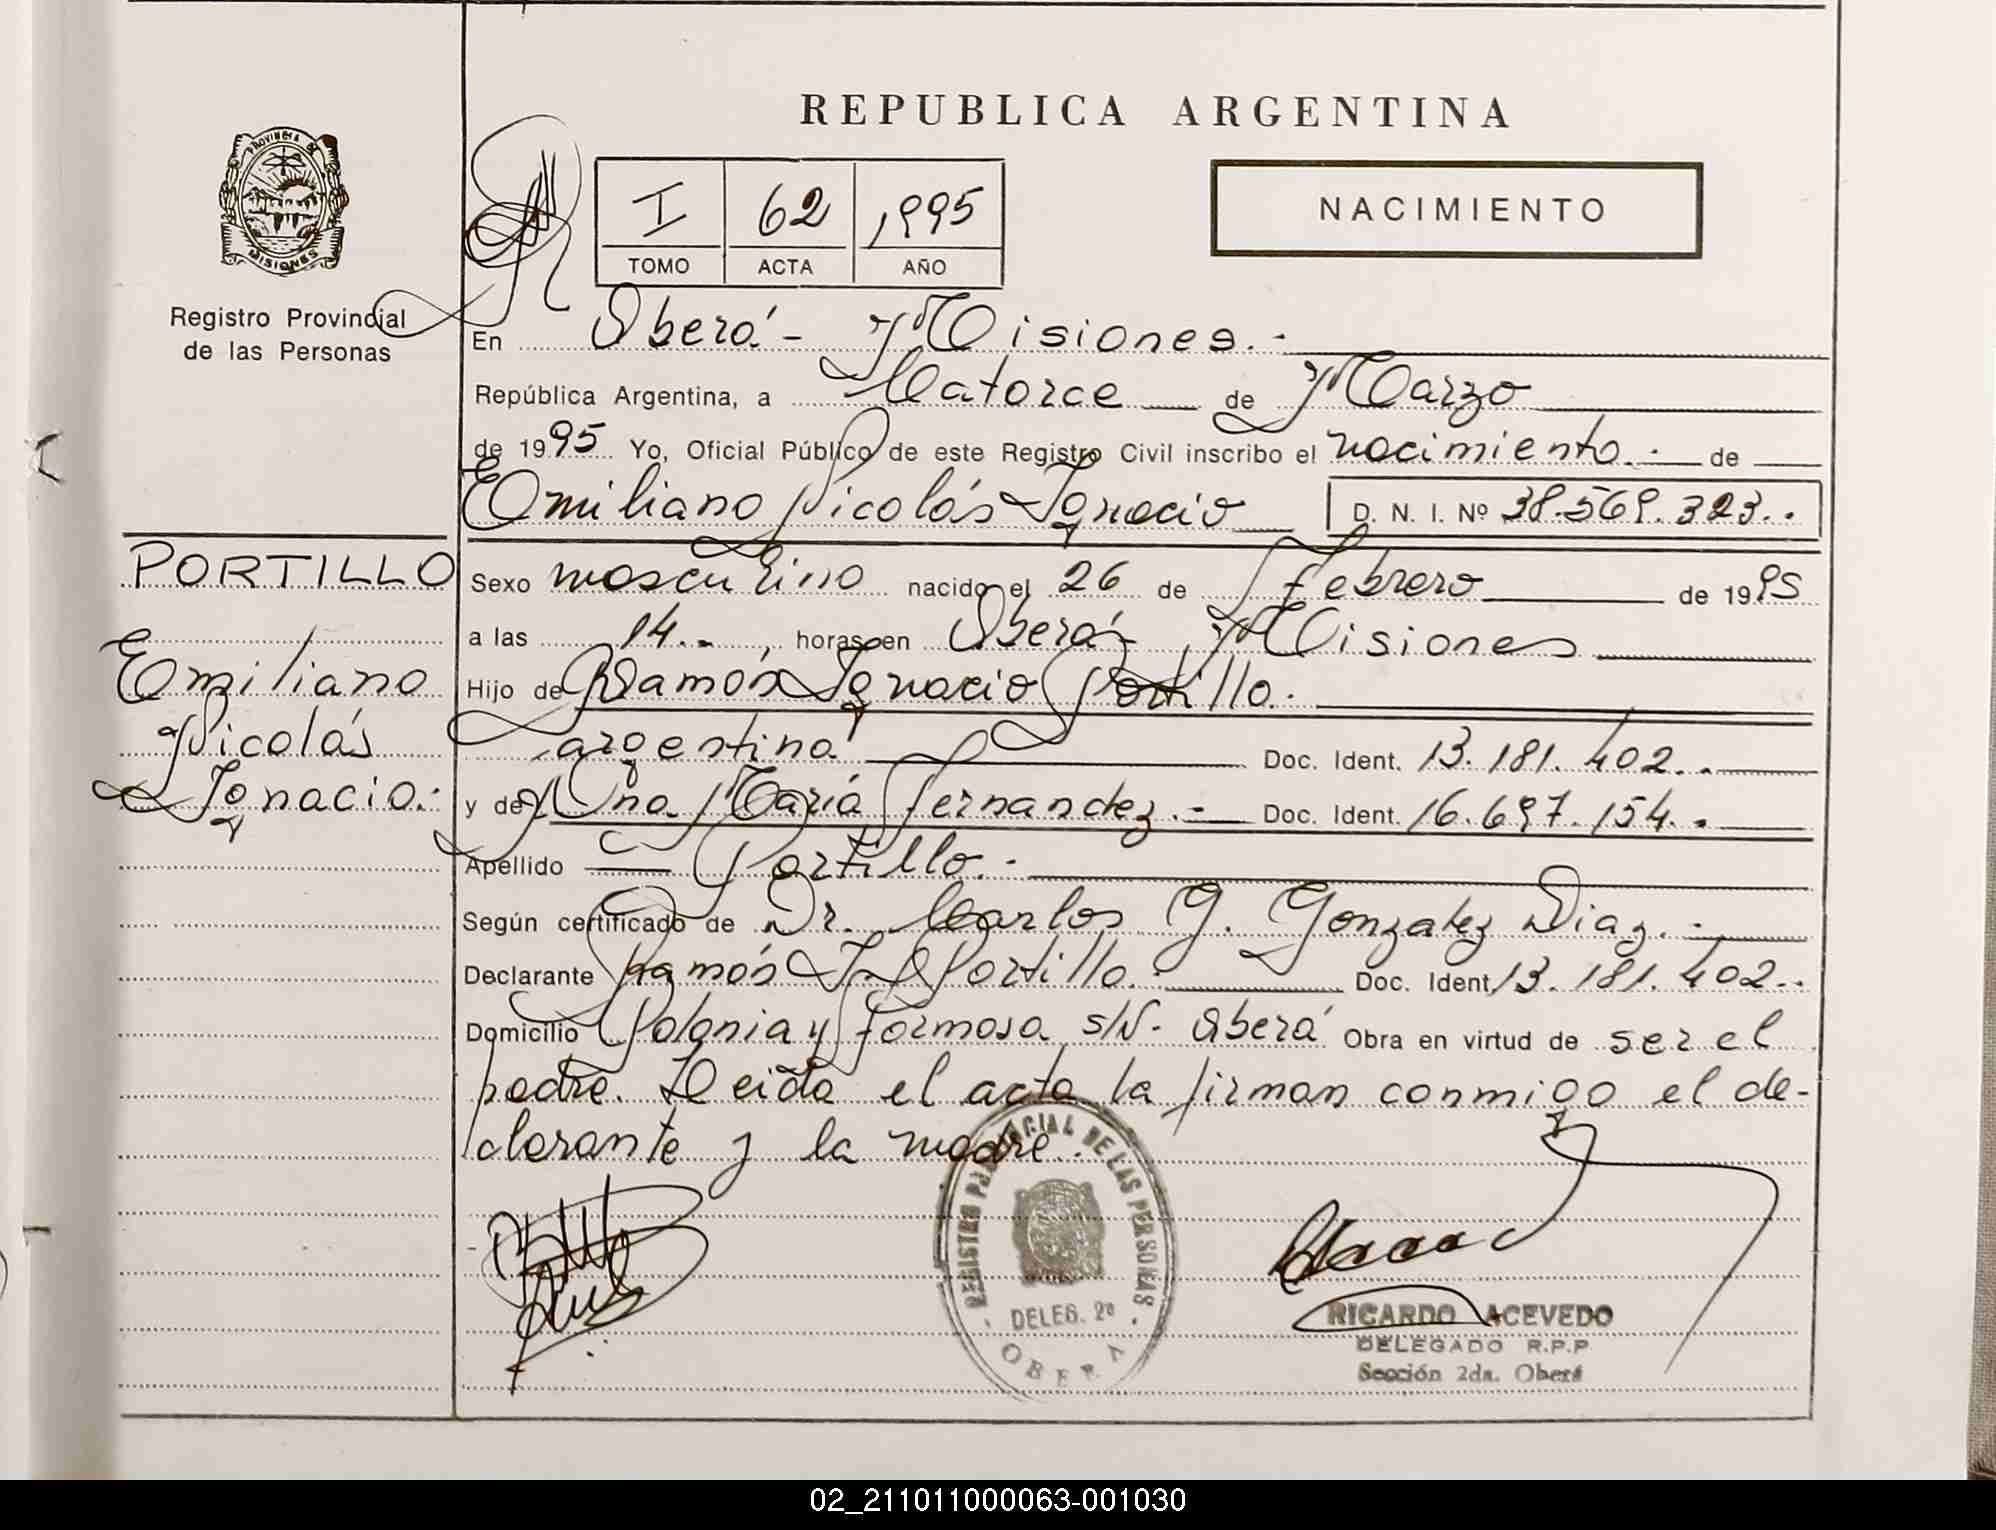 REPUBLICA ARGENTINA
PROVINCIA DE
MISIONES
Registro Provincial
de las Personas
I 62 1995
TOMO ACTA AÑO
NACIMIENTO
En Oberá - Misiones.-
República Argentina, a Catorce de Marzo
de 1995 Yo, Oficial Público de este Registro Civil inscribo el nacimiento.- de
Emiliano Nicolás Ignacio D. N. I. Nº 38.569.323..
PORTILLO
Emiliano
Nicolás
Ignacio.-
Sexo masculino nacido el 26 de febrero de 1995
a las 14.- , horas en Oberá - Misiones
Hijo de Ramón Ignacio Portillo.-
argentina Doc. Ident. 13.181.402..
y de Ana María Fernandez.- Doc. Ident. 16.697.154..
Apellido Portillo.-
Según certificado de Dr. Carlos G. Gonzalez Diaz.-
Declarante Ramón I. Portillo.- Doc. Ident. 13.181.402..
Domicilio Polonia y formosa s/N- Oberá Obra en virtud de ser el
padre. Leida el acta la firman conmigo el de-
clarante y la madre.-
REGISTRO PROVINCIAL DE LAS PERSONAS
DELEG. 2ª
OBERA
RICARDO ACEVEDO
DELEGADO R.P.P.
Sección 2da. Oberá
02_211011000063-001030